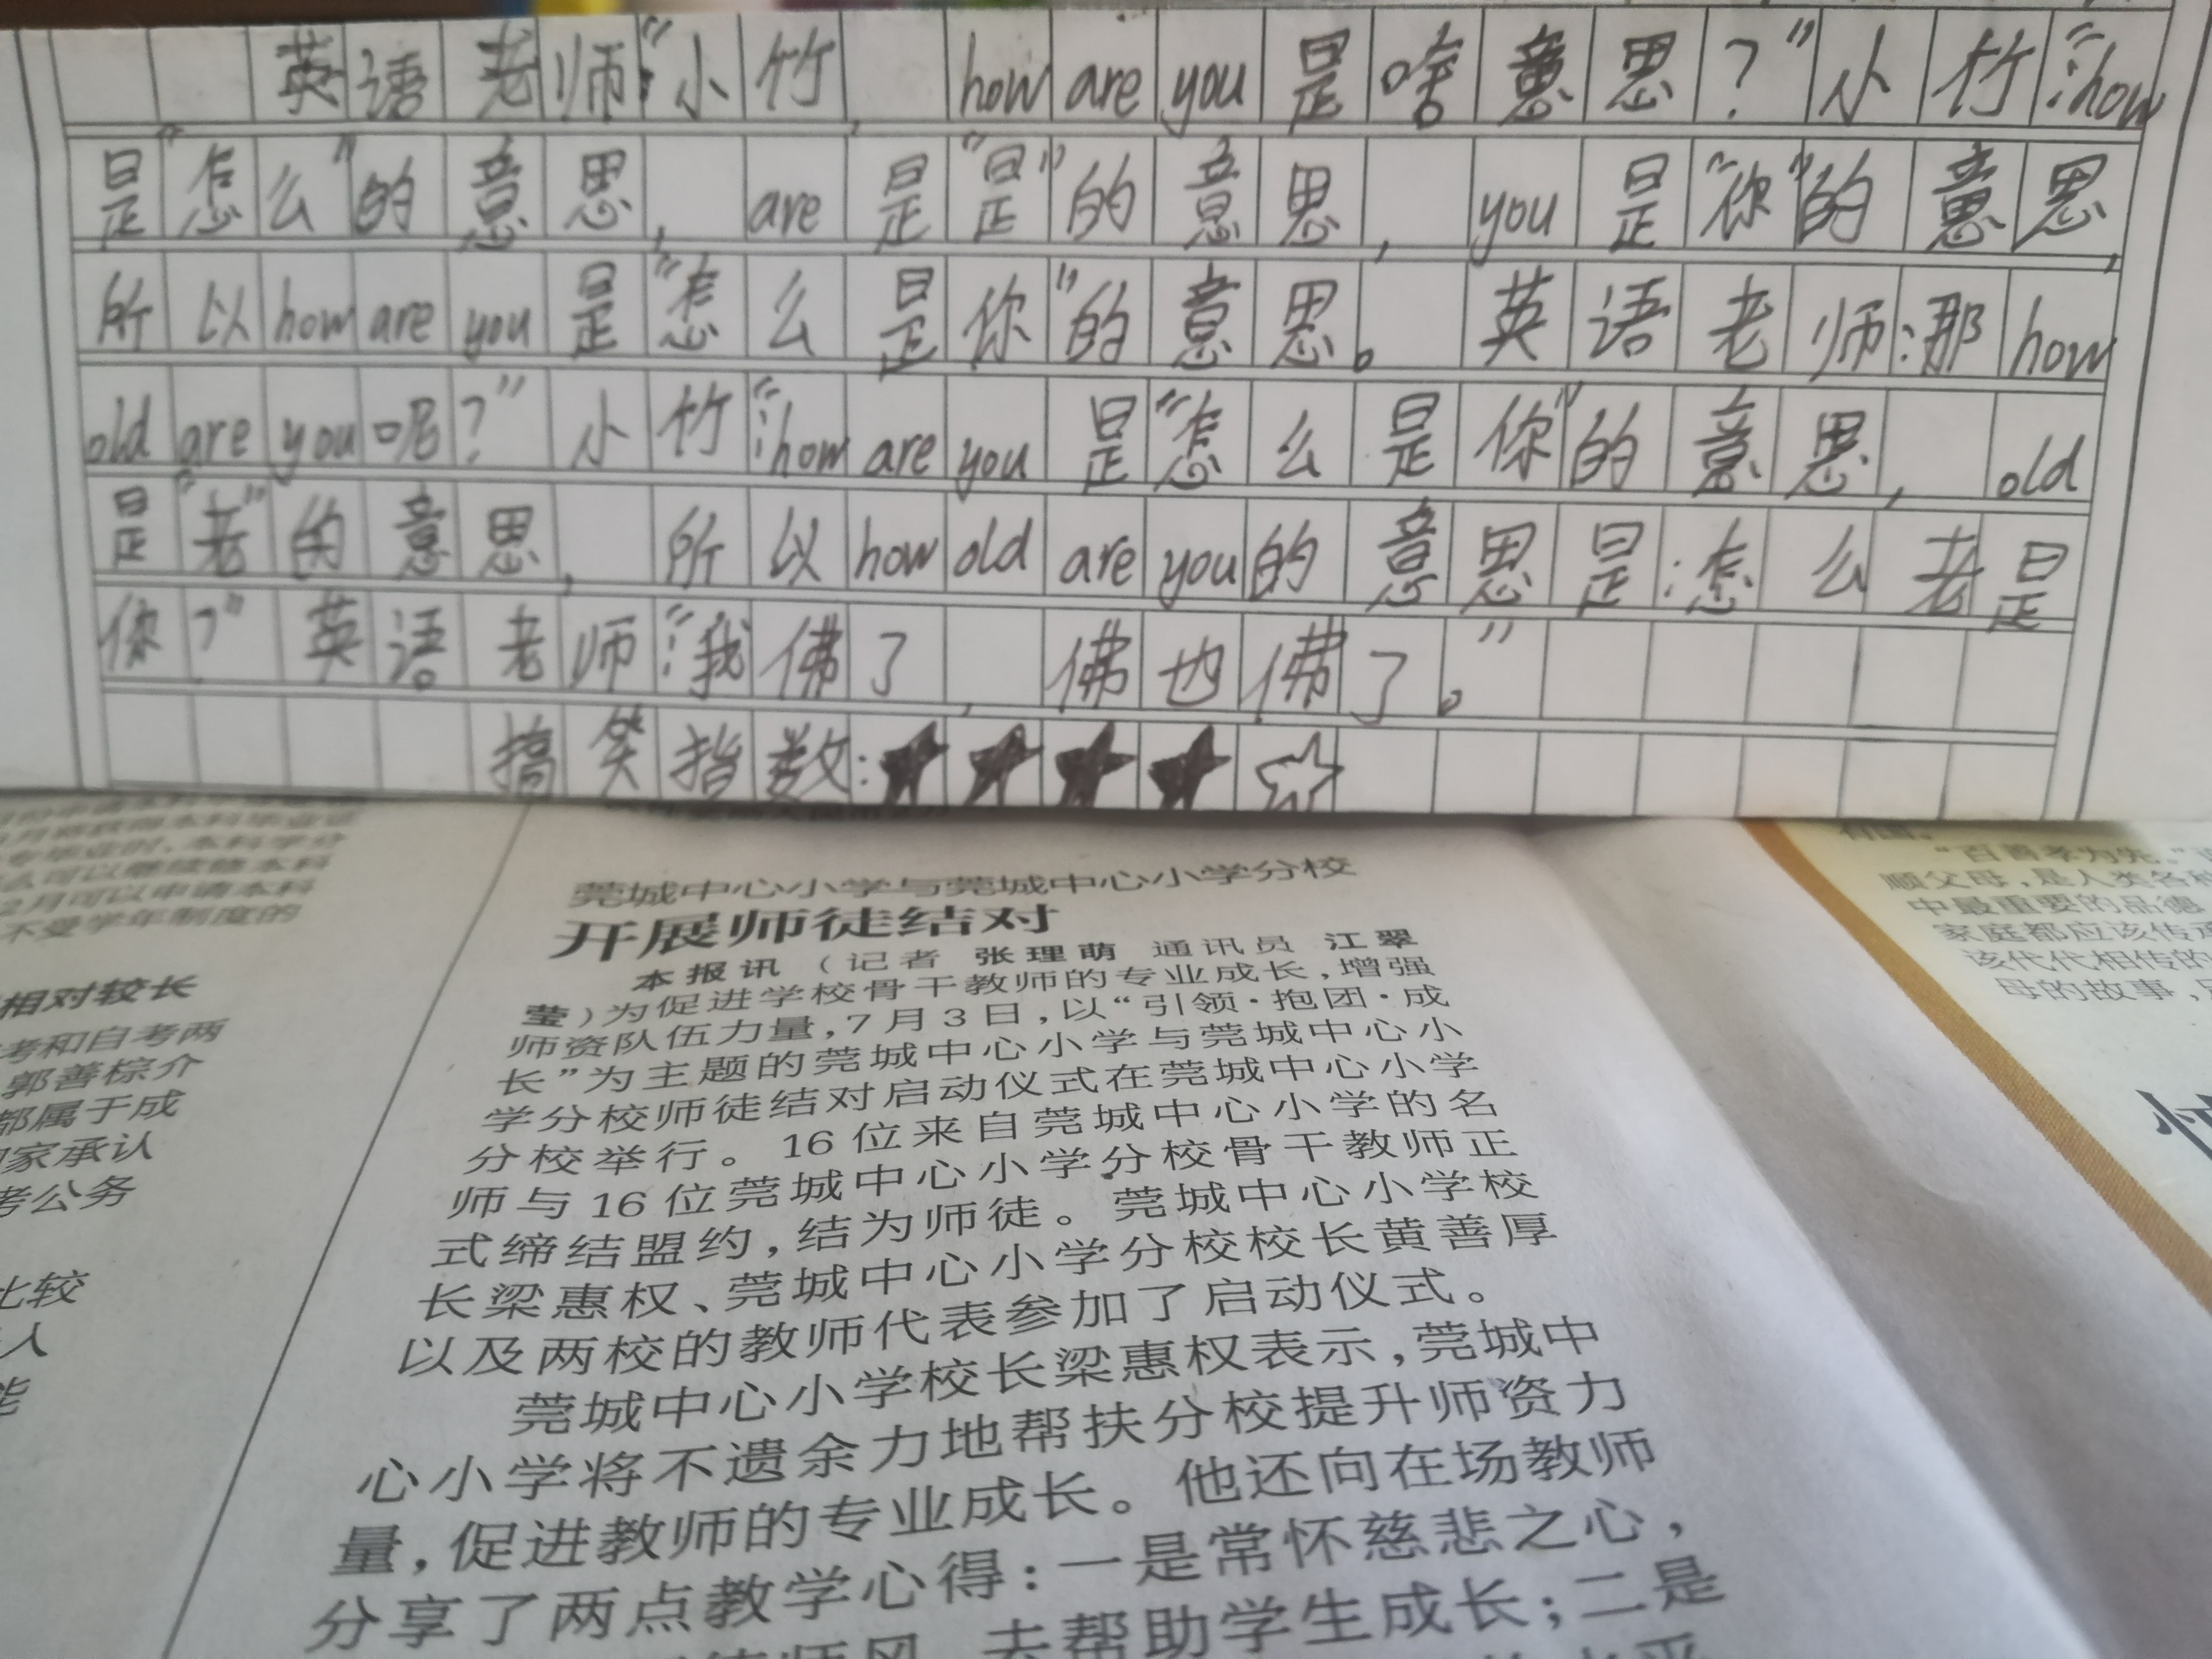 英语老师:“小竹,how are you是啥意思?”小竹:“how
是“怎么”的意思,are是“是”的意思,you是“你”的意思,
所以how are you是“怎么是你”的意思。英语老师:那how
old are you呢?”小竹:“how are you是“怎么是你”的意思,old
是“老”的意思,所以how old are you的意思是:怎么老是
你?”英语老师:“我佛了,佛也佛了。”
搞笑指数:★★★★☆
月将获得本科毕业证
专毕业时,本科学分
么可以继续修本科
2月可以申请本科
不受学年制度的
相对较长
考和自考两
郭善棕介
都属于成
家承认
考公务
比较
人
能
莞城中心小学与莞城中心小学分校
开展师徒结对
本报讯(记者 张理萌 通讯员 江翠
莹)为促进学校骨干教师的专业成长,增强
师资队伍力量,7月3日,以“引领·抱团·成
长”为主题的莞城中心小学与莞城中心小
学分校师徒结对启动仪式在莞城中心小学
分校举行。16位来自莞城中心小学的名
师与16位莞城中心小学分校骨干教师正
式缔结盟约,结为师徒。莞城中心小学校
长梁惠权、莞城中心小学分校校长黄善厚
以及两校的教师代表参加了启动仪式。
莞城中心小学校长梁惠权表示,莞城中
心小学将不遗余力地帮扶分校提升师资力
量,促进教师的专业成长。他还向在场教师
分享了两点教学心得:一是常怀慈悲之心,
去帮助学生成长;二是
“百善孝为先。”
顺父母,是人类各种
中最重要的品德
家庭都应该传承
该代代相传的
母的故事,